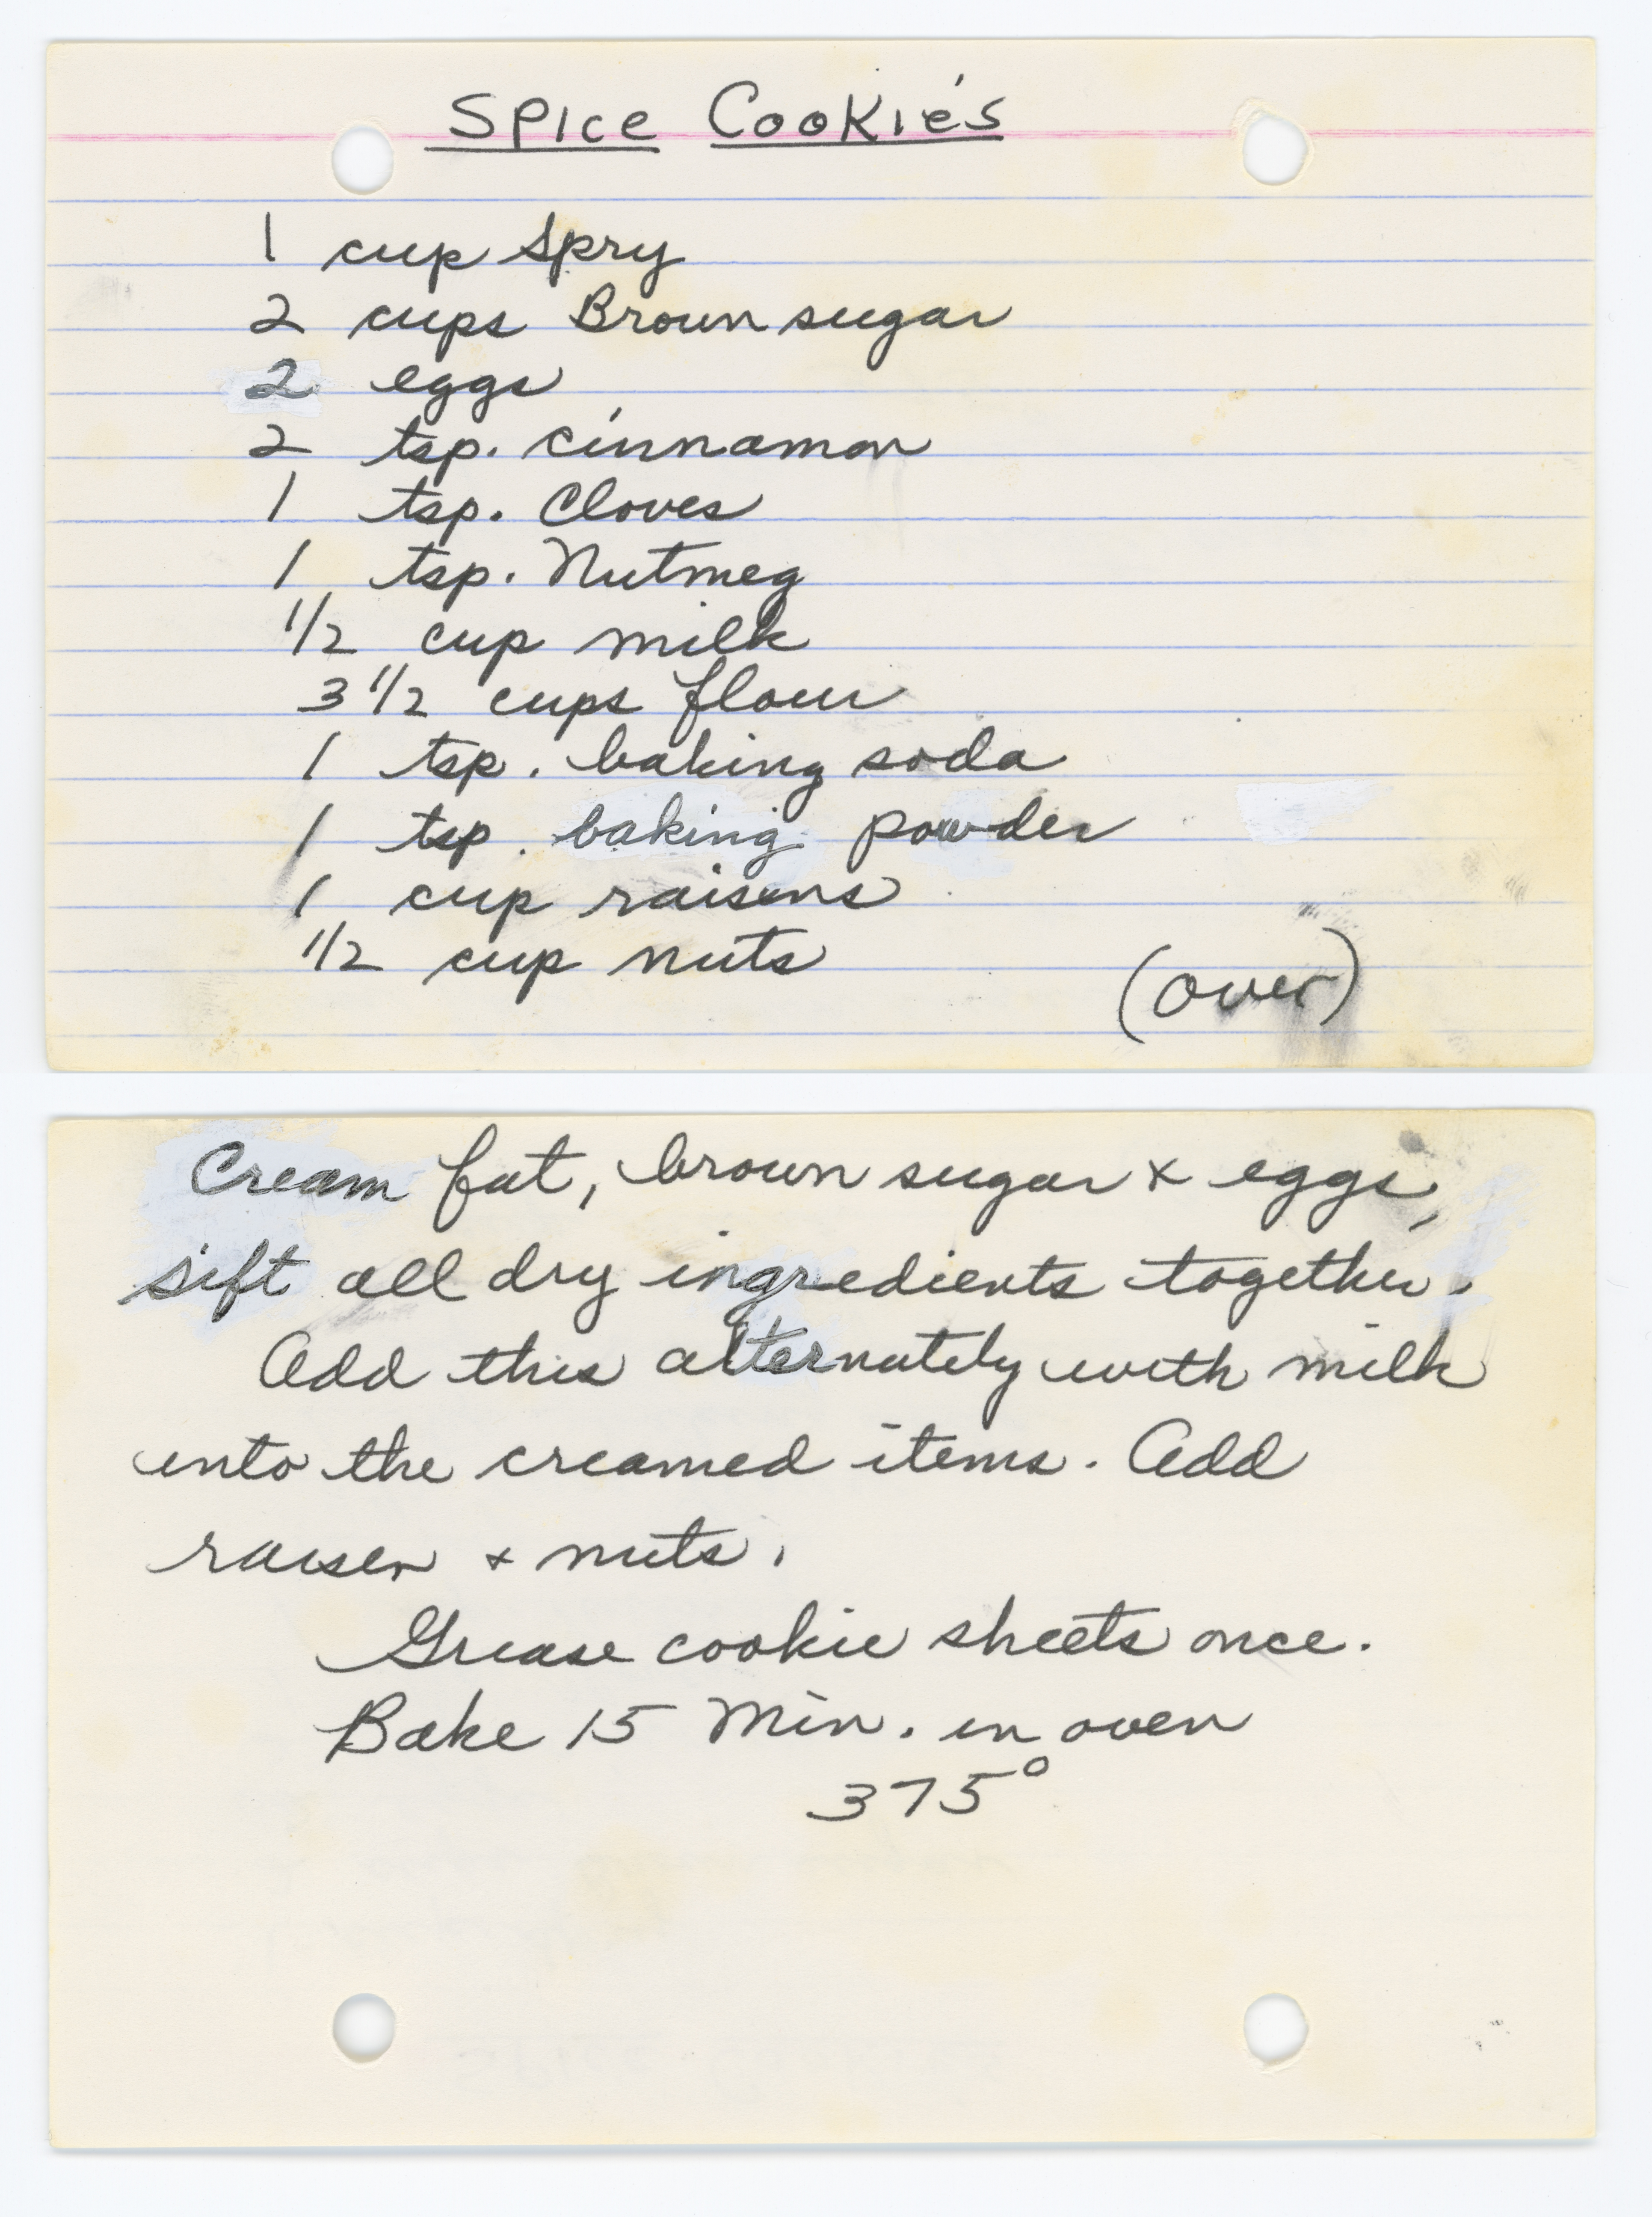 Spice Cookies
1 cup Spry
2 cups Brown sugar
2 eggs
2 tsp. cinnamon
1 tsp. Cloves
1 tsp. Nutmeg
1/2 cup milk
3 1/2 cups flour
1 tsp. baking soda
1 tsp. baking powder
1 cup raisens
1/2 cup nuts
(over)
Cream fat, brown sugar & eggs,
sift all dry ingredients together.
Add this alternately with milk
into the creamed items. Add
raisen & nuts.
Grease cookie sheets once.
Bake 15 Min. in oven
375°